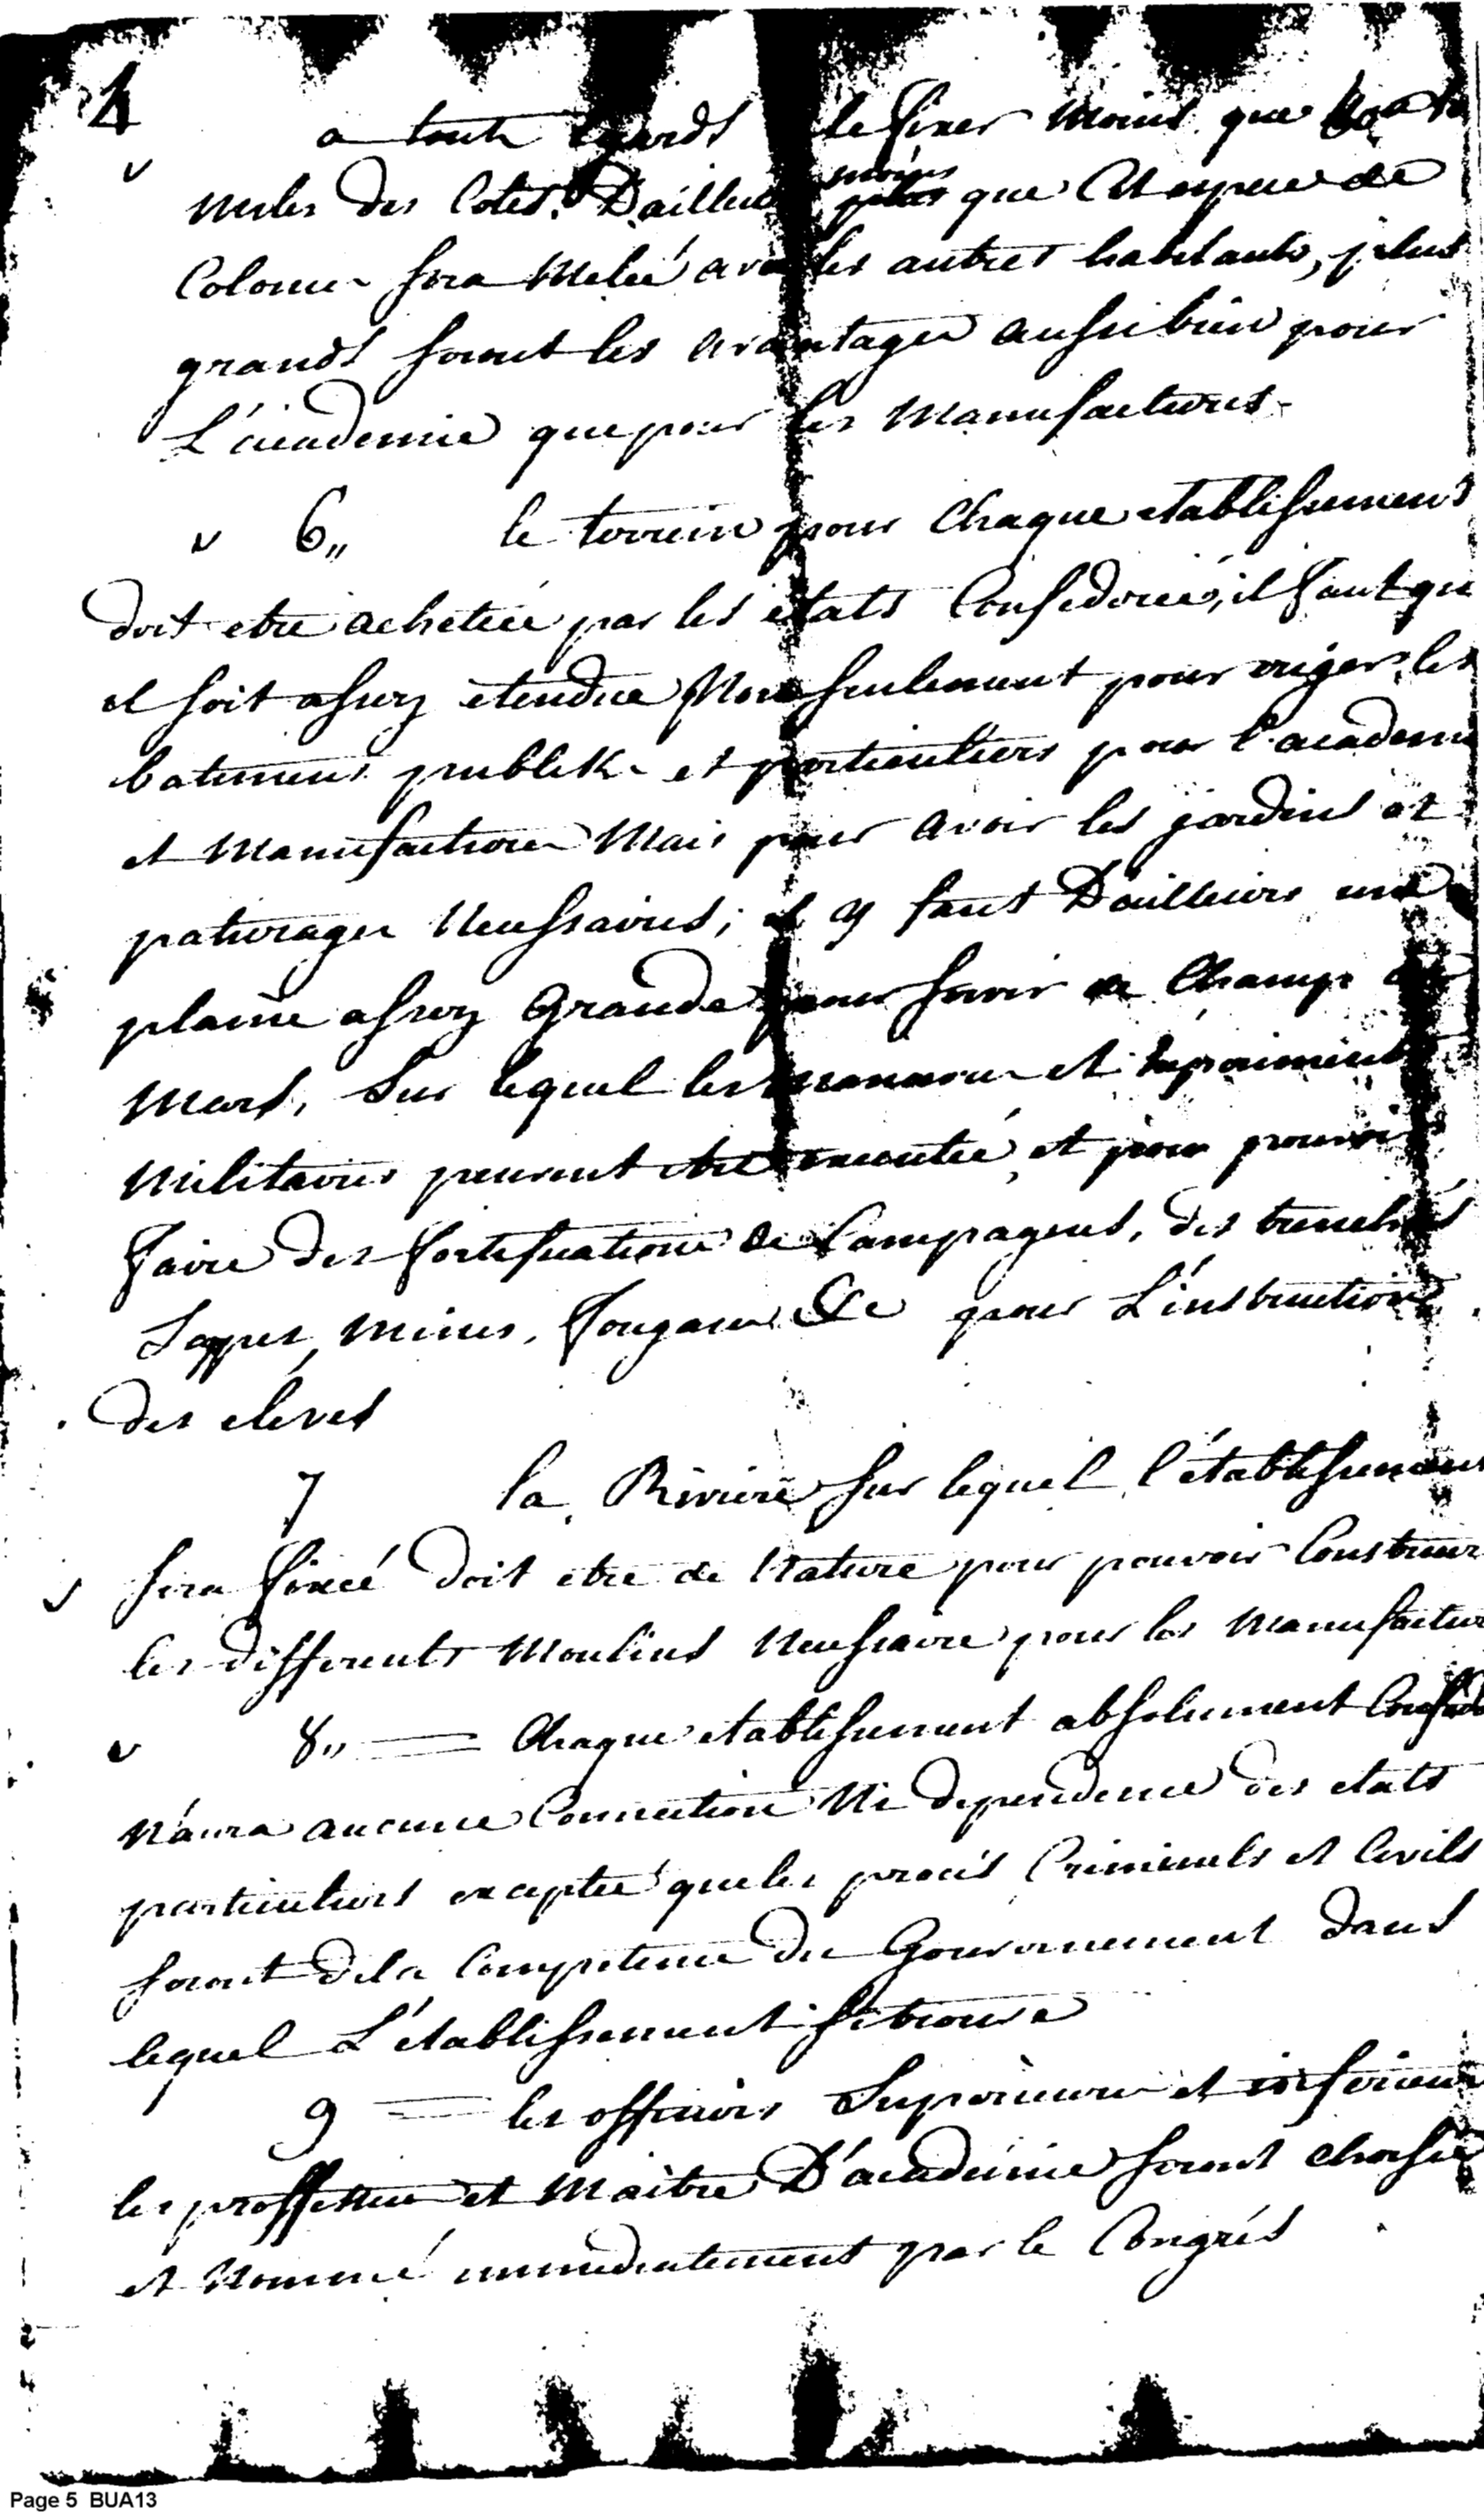 4
a touts egards de fixer moins que
moins
Miles des Cotes. D'ailleurs plus que Cet espece de
Colonie sera Melée avec les autres habitants, plus
grands seront les avantages aussi bien pour
L'academie que pour les Manufactures
6,, le terrein pour Chaque etablissement
doit etre achetée par les états Confederée, il faut qu
il soit assez etendue Non seulement pour eriger les
batimens publik et particuliers pour l'academie
et Manufacture Mais pour avoir les jardins et
paturages Necessaires; il y faut D'ailleurs une
plaine assez Grande pour servir de Champ de
Mars, Sur lequel les manœuvre et experiments
Militaires peuvent etre executée, et pour pouvoir
faire des fortifications de Campagnes, des trenchés
Sappes, Mines, fougasse &c pour L'instruction
des eleves
7 la Riviere sur lequel l'établissement
sera fixcé doit etre de Nature pour pouvoir Construer
les differents Moulins Necessaire pour les Manufactur
8,, Chaque etablissement absolument
N'aura aucune Connection Ni dependence des etats
particuliers exceptée que les procés Criminels et Civils
seront de la Competence du Gouvernement dans
lequel L'etablissement se trouve
9 les officiers Superieurs et inferieurs
les proffesseur et Maitre D'académie seront choisie
et Nommé immediatement par le Congrés
Page 5 BUA13